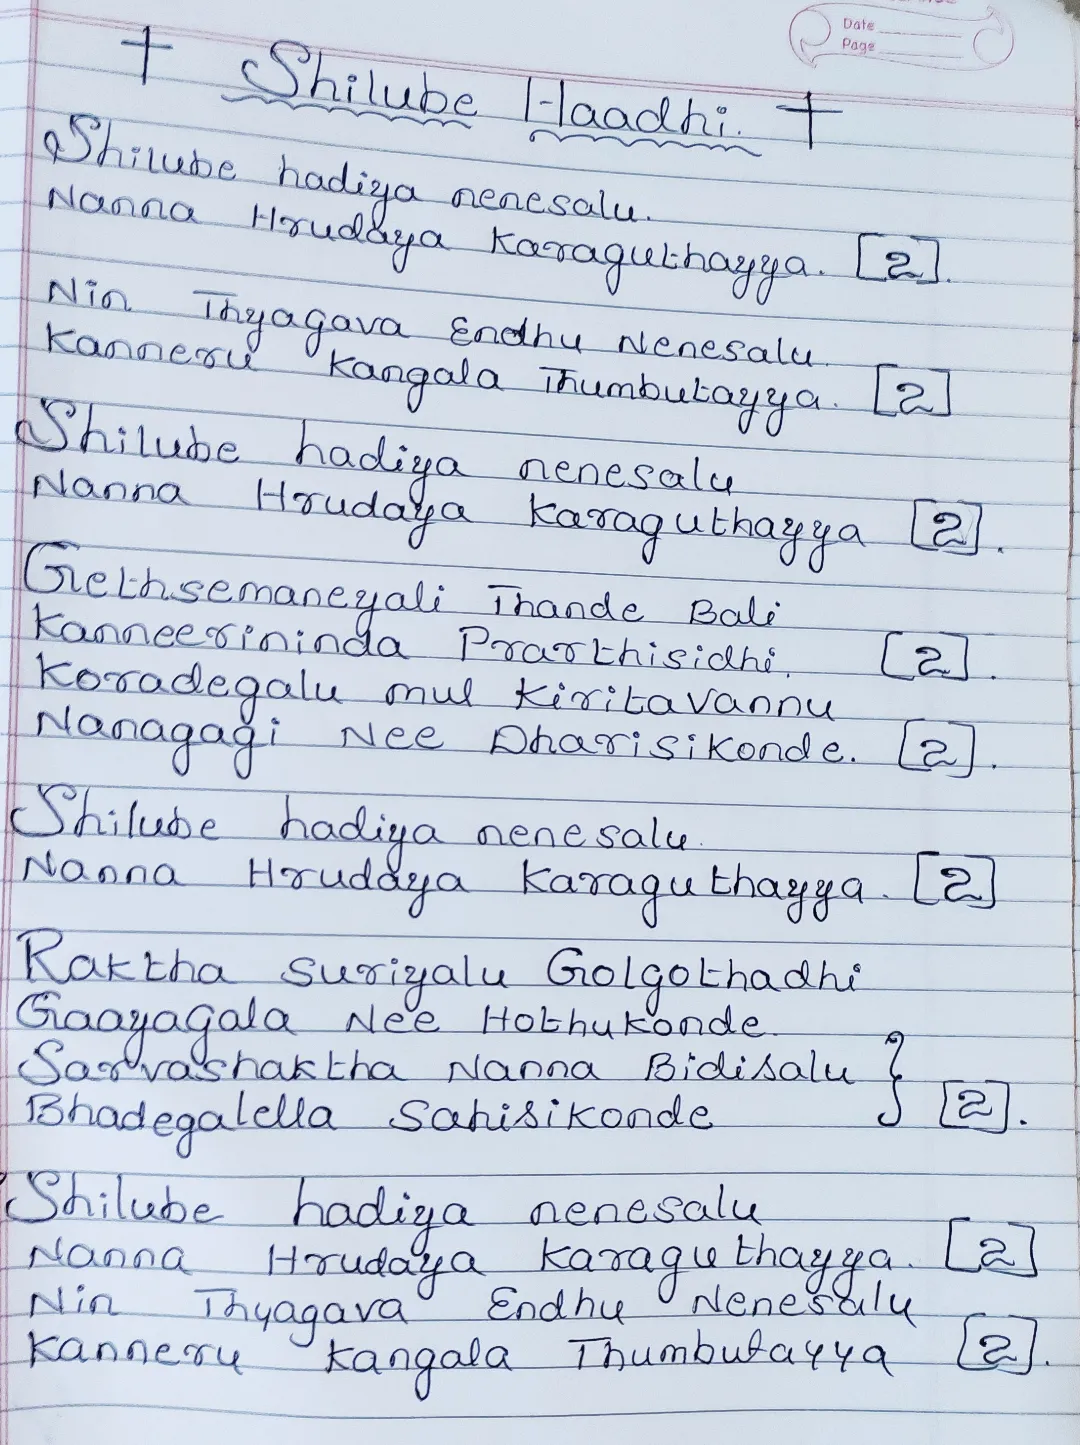 Date
Page
† Shilube Haadhi. †
Shilube hadiya nenesalu.
Nanna Hrudaya Karaguthayya. [2].
Nin Thyagava Endhu Nenesalu.
Kanneru Kangala Thumbutayya. [2]
Shilube hadiya nenesalu
Nanna Hrudaya Karaguthayya [2].
Gethsemaneyali Thande Bali
Kanneerininda Prarthisidhi. [2].
Koradegalu mul Kiritavannu
Nanagagi Nee Dharisikonde. [2].
Shilube hadiya nenesalu.
Nanna Hrudaya Karaguthayya. [2]
Raktha suriyalu Golgothadhi
Gaayagala Nee Hothukonde.
Sarvashaktha Nanna Bidisalu }
Bhadegalella Sahisikonde [2].
Shilube hadiya nenesalu
Nanna Hrudaya Karaguthayya. [2]
Nin Thyagava Endhu Nenesalu
Kanneru Kangala Thumbutayya [2].